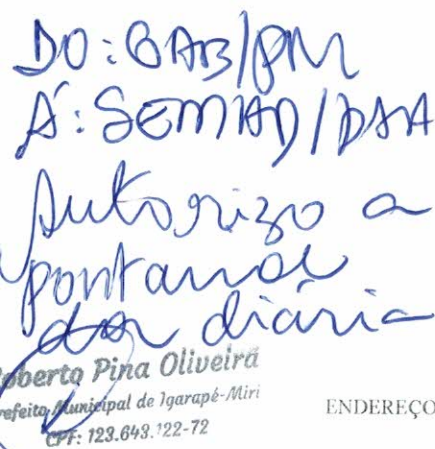 DO: GAB/PM
À: SEMAD/DAA
Autorizo a
das diária
Roberto Pina Oliveira
Prefeito Municipal de Igarapé-Miri
CPF: 123.643.122-72
ENDEREÇO